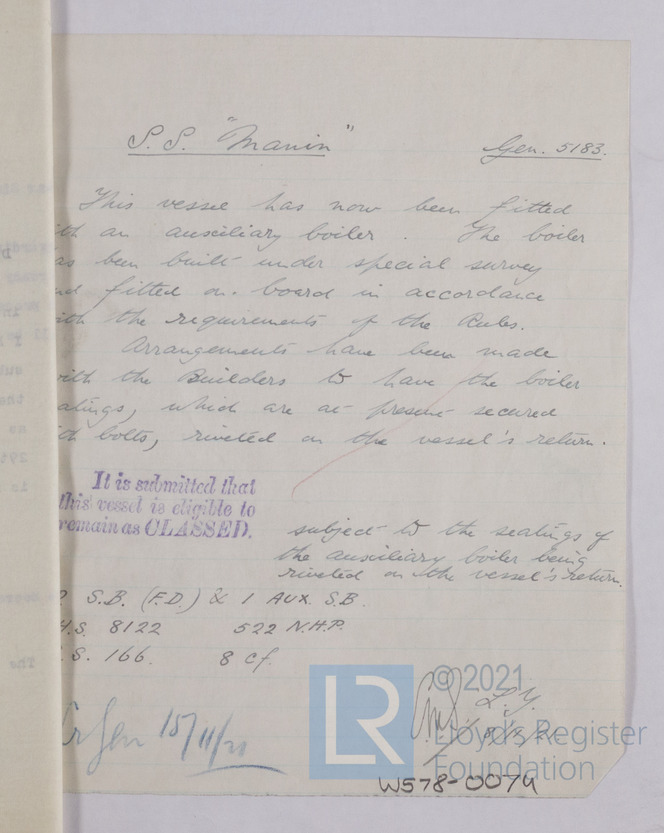 S.S. "Manin" Gen. 5183.
This vessel has now been fitted
ith an auxiliary boiler. The boiler
as been built under special survey
nd fitted on board in accordance
ith the requirements of the Rules.
Arrangements have been made
with the Builders to have the boiler
atings, which are at present secured
ith bolts, riveted on the vessel's return.
It is submitted that
this vessel is eligible to
remain as CLASSED.
subject to the seatings of
the auxiliary boiler being
riveted on the vessel's return.
S.B. (F.D.) & 1 AUX. S.B.
H.S. 8122 522 N.H.P.
.S. 166. 8 cf.
15/11/21
LR
© 2021
Lloyd's Register
Foundation
W578-0079